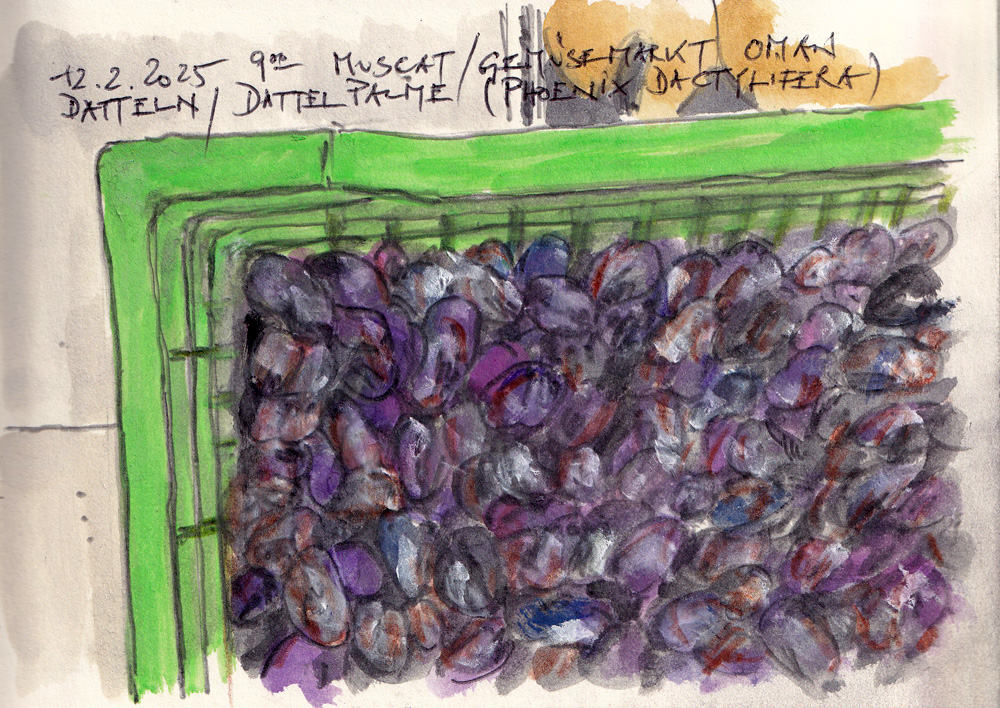 12.2.2025 9⁰⁰ MUSCAT/GEMÜSEMARKT OMAN
DATTELN/DATTELPALME/(PHOENIX DACTYLIFERA)